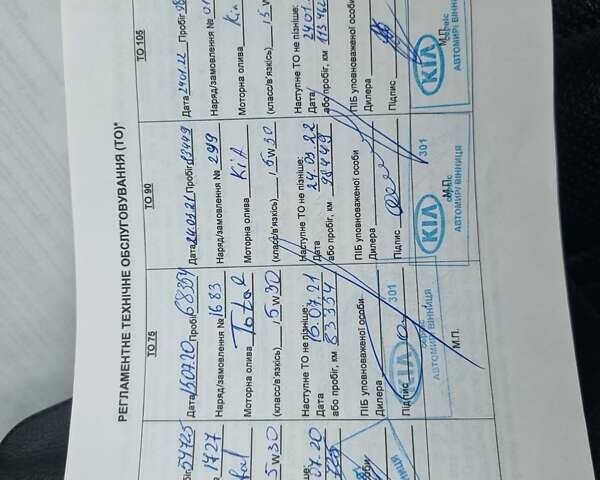 РЕГЛАМЕНТНЕ ТЕХНІЧНЕ ОБСЛУГОВУВАННЯ (ТО)*
54725
1727
5W30
07.20
ВІННИЦЯ
ТО 75
Дата 15.07.20 Пробіг 68334
Наряд/замовлення № 1683
Моторна олива Total
(класс/в'язкісь) 5W30
Наступне ТО не пізніше:
Дата 15.07.21
або пробіг, км 83334
ПІБ уповноваженої особи
Дилера
Підпис
301
KIA сервіс
АВТОМИР ВІННИЦЯ
М.П.
ТО 90
Дата 24.03.21 Пробіг 83449
Наряд/замовлення № 299
Моторна олива KIA
(класс/в'язкісь) 5W30
Наступне ТО не пізніше:
Дата 24.03.22
або пробіг, км 98449
ПІБ уповноваженої особи
Дилера
Підпис
301
М.П.
KIA сервіс
АВТОМИР ВІННИЦЯ
ТО 105
Дата 24.01.22 Пробіг
Наряд/замовлення №
Моторна олива Kia
(класс/в'язкісь) 5W
Наступне ТО не пізніше:
Дата 24.01
або пробіг, км
ПІБ уповноваженої особи
Дилера
Підпис
М.П.
KIA сервіс
АВТОМИР ВІННИ